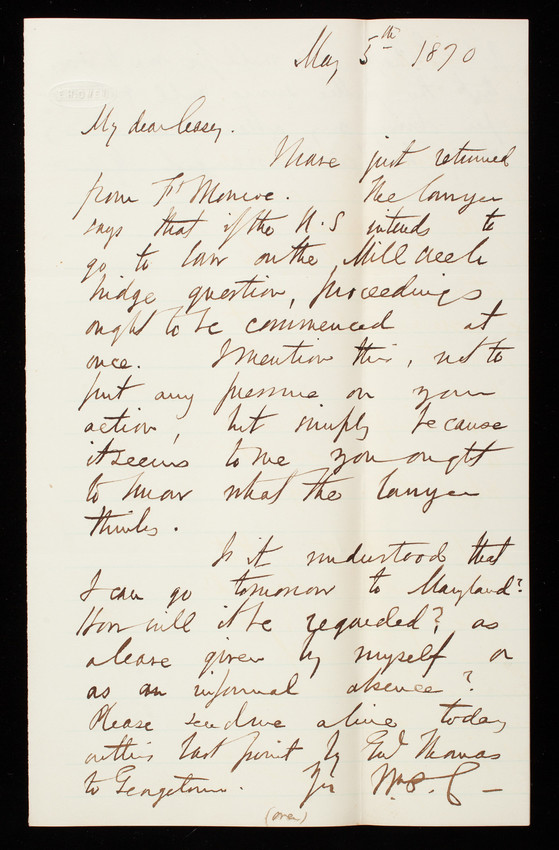 May 5th 1870
My dear Casey.
I have just returned
from Ft Monroe. The lawyer
says that if the U.S intends to
go to law on the Mill Creek
bridge question, proceedings
ought to be commenced at
once. I mention this, not to
put any pressure on your
action, but simply because
it seems to me you ought
to know what the lawyer
thinks.
Is it understood that
I can go tomorrow to Maryland?
How will it be regarded? as
a leave given by myself or
as an informal absence?
Please send me a line today
on this last point by Genl Thomas
to Georgetown. Yrs Wm P. C
(over)